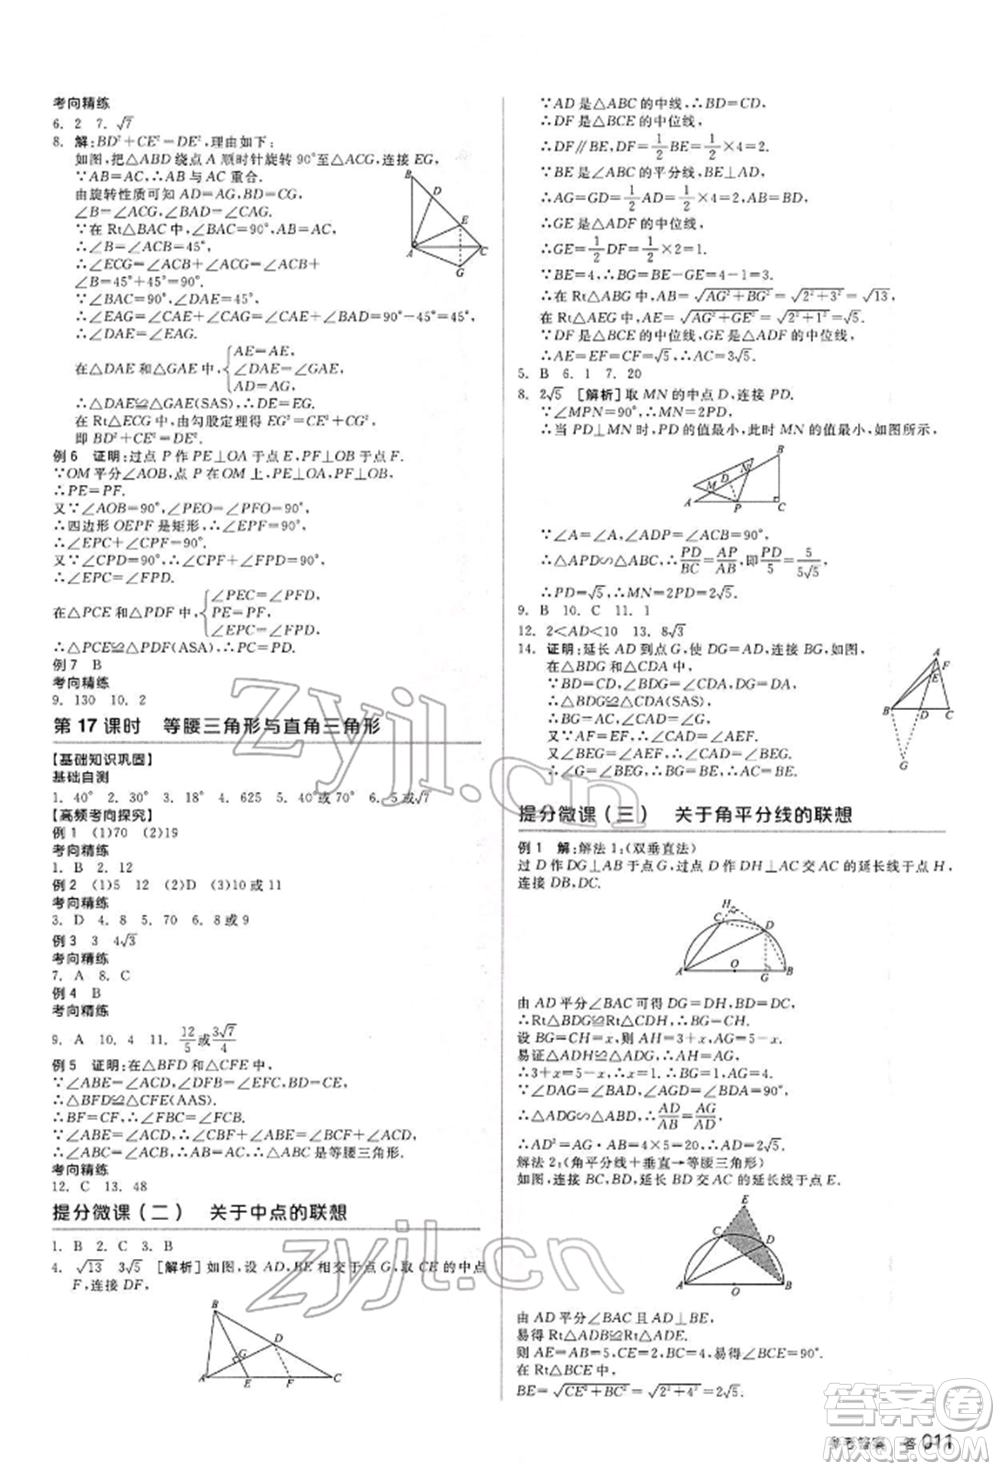 考向精练
6. 2  7. √7
8. 解:BD²+CE²=DE²,理由如下:
如图,把△ABD绕点A顺时针旋转90°至△ACG,连接EG,
∵AB=AC,∴AB与AC重合.
由旋转性质可知AD=AG,BD=CG,
∠B=∠ACG,∠BAD=∠CAG.
∵在Rt△BAC中,∠BAC=90°,
∴∠ECG=∠ACB+∠ACG=∠ACB+
∠B=45°+45°=90°.
∵∠BAC=90°,∠DAE=45°,
∴∠EAG=∠CAE+∠CAG=∠CAE+∠BAD=90°-45°=45°,
∴∠DAE=∠EAG.
在△DAE和△GAE中,{AE=AE, ∠DAE=∠EAG, AD=AG,
∴△DAE≌△GAE(SAS),∴DE=EG.
在Rt△ECG中,由勾股定理得EG²=CE²+CG²,
即BD²+CE²=DE².
例6 证明:过点P作PE⊥OA于点E,PF⊥OB于点F.
∵OM平分∠AOB,点P在OM上,PE⊥OA,PF⊥OB,
∴PE=PF.
又∵∠AOB=90°,∠PEO=∠PFO=90°,
∴四边形OEPF是矩形,∴∠EPF=90°,
∴∠EPC+∠CPF=90°.
又∵∠CPD=90°,∴∠CPF+∠FPD=90°,
∴∠EPC=∠FPD.
在△PCE和△PDF中,{∠PEC=∠PFD, PE=PF, ∠EPC=∠FPD,
∴△PCE≌△PDF(ASA),∴PC=PD.
例7 B
考向精练
9. 130  10. 2
第17课时 等腰三角形与直角三角形
【基础知识巩固】
基础自测
1. 40°  2. 30°  3. 18°  4. 625  5. 20°  6. 5或√7
【高频考向探究】
例1 (1)70 (2)19
考向精练
1. B  2. 12
例2 (1)5 (2)D (3)10或11
考向精练
3. D  4. 8  5. 70  6. 8或9
例3 3 4√3
考向精练
7. A  8. C
例4 B
考向精练
9. A  10. 4  11. 12/5或3√7/4
例5 证明:在△BFD和△CFE中,
∵∠ABE=∠ACD,∠DFB=∠EFC,BD=CE,
∴△BFD≌△CFE(AAS).
∴BF=CF,∴∠FBC=∠FCB.
∵∠ABE=∠ACD,∴∠CBF+∠ABE=∠BCF+
∠ACD,∴∠ABC=∠ACB,∴△ABC是等腰三角形.
考向精练
12. C  13. 48
提分微课(二) 关于中点的联想
1. B  2. C  3. B
4. √13 3√5 [解析]如图,设AD,BE相交于点G,取CE的中点
F,连接DF,
B
D
G
A
E
F
C
∵AD是△ABC的中线,∴BD=CD,
∴DF是△BCE的中位线,
∴DF∥BE,DF=1/2BE=1/2×4=2.
∵BE是∠ABC的平分线,BE⊥AD,
∴AG=GD=1/2AD=1/2×4=2,
∴GE是△ADF的中位线,
∴GE=1/2DF=1/2×2=1.
∵BE=4,∴BG=BE-GE=4-1=3.
∴在Rt△ABG中,AB=√AG²+BG²=√2²+3²=√13,
在Rt△AEG中,AE=√AG²+GE²=√2²+1²=√5.
∵DF是△BCE的中位线,GE是△ADF的中位线,
∴AE=EF=CF=√5,∴AC=3√5.
5. B  6. 1  7. 20
8. 2√5 [解析]取MN的中点D,连接PD.
∵∠MPN=90°,∴MN=2PD,
∴当PD⊥MN时,PD的值最小,此时MN的值最小,如图所示,
B
N
D
M
A
P
C
∵∠A=∠A,∠ADP=∠ACB=90°,
∴△APD∽△ABC,∴PD/BC=AP/AB,即PD/5=5/5√5,
∴PD=√5,∴MN=2PD=2√5.
9. B  10. C  11. 1
12. 2<AD<10  13. 8√3
14. 证明:延长AD到点G,使DG=AD,连接BG,如图.
在△BDG和△CDA中,
∵BD=CD,∠BDG=∠CDA,DG=DA,
∴△BDG≌△CDA(SAS),
∴BG=AC,∠CAD=∠G.
又∵AF=EF,∴∠CAD=∠AEF.
又∵∠BEG=∠AEF,∴∠CAD=∠BEG,
∴∠G=∠BEG,∴BG=BE.
∵AC=BG,∴BE=AC.
提分微课(三) 关于角平分线的联想
例1 解:解法1:(双垂直法)
过D作DG⊥AB于点G,过点D作DH⊥AC交AC的延长线于点H,
连接DB,DC.
H
C
D
A
O
G
B
由AD平分∠BAC可得DG=DH,BD=CD,
∴Rt△BDG≌Rt△CDH,∴BG=CH.
设BG=CH=x,则AH=3+x,AG=5-x,
易证△ADH≌△ADG,∴AH=AG,
∴3+x=5-x,∴x=1,∴AG=4.
∵∠DAG=∠BAD,∠AGD=∠BDA=90°,
∴△ADG∽△ABD,∴AD/AB=AG/AD,
∴AD²=AG·AB=4×5=20,∴AD=2√5.
解法2:(角平分线+垂直→等腰三角形)
如图,连接BD并延长,与AC的延长线交于点E.
E
C
D
A
O
B
由AD平分∠BAC且AD⊥BE,
易得Rt△ADB≌Rt△ADE.
∴AE=AB=5,CE=2,BC=4.
在Rt△BCE中,
BE=√CE²+BC²=√2²+4²=2√5.
参考答案 答 011
zyjl.cn
zyjl.cn
答案圈